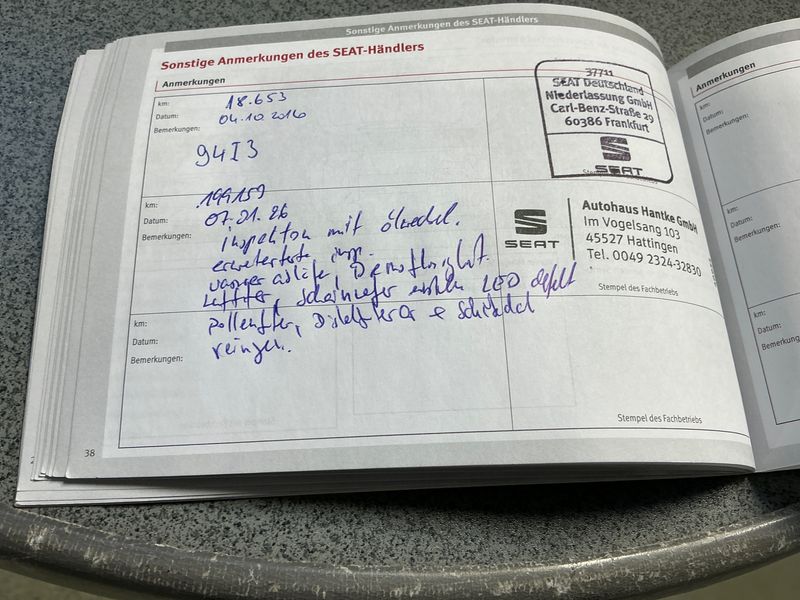 Sonstige Anmerkungen des SEAT-Händlers
Sonstige Anmerkungen des SEAT-Händlers
Anmerkungen
km: 18.653
Datum: 04.10.2016
Bemerkungen:
94I3
37711
SEAT Deutschland
Niederlassung GmbH
Carl-Benz-Straße 29
60386 Frankfurt
SEAT
km: 199159
Datum: 07.01.26
Bemerkungen: Inspektion mit Ölwechsel.
erweiterte insp.
Bremsflüssigkeit.
LED defekt
Pollenfilter,
reinigen.
SEAT
Autohaus Hantke GmbH
Im Vogelsang 103
45527 Hattingen
Tel. 0049 2324-32830
Stempel des Fachbetriebs
km:
Datum:
Bemerkungen:
Stempel des Fachbetriebs
38
Anmerkungen
km:
Datum:
Bemerkungen:
km:
Datum:
Bemerkungen:
km:
Datum: